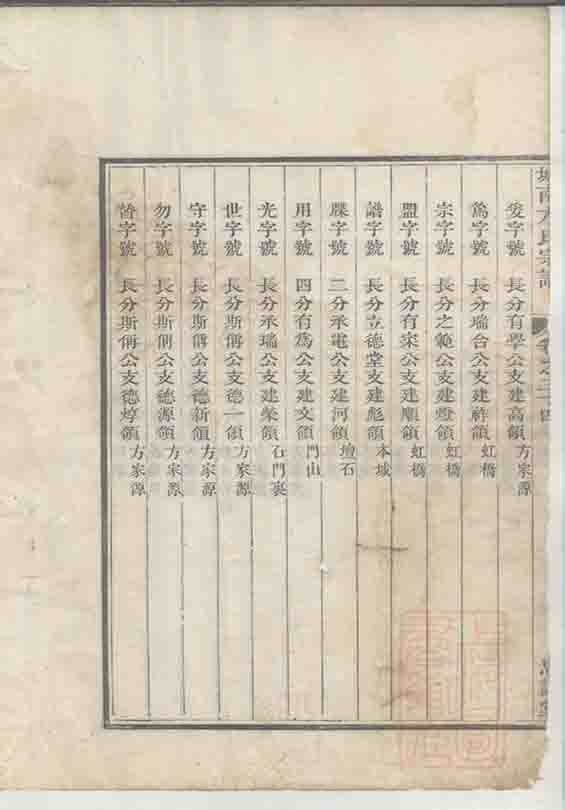 城南方氏宗譜
卷之二十四
爰字號 長分有學公支建高領 方家源
爲字號 長分瑞台公支建祚領 虹橋
宗字號 長分之範公支建燈領 虹橋
盟字號 長分有宋公支建順領 虹橋
譜字號 長分立德堂支建彪領 本城
牒字號 二分承電公支建河領 壇石
用字號 四分有爲公支建文領 門山
光字號 長分承瑞公支建榮領 石門裏
世字號 長分斯侢公支德一領 方家源
守字號 長分斯侢公支德新領 方家源
勿字號 長分斯侢公支德源領 方家源
替字號 長分斯侢公支德焞領 方家源